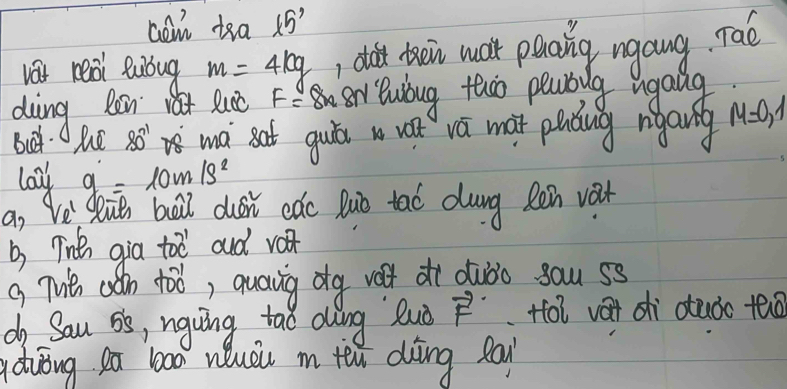 kiểm tra 15'
Vật khối lượng m = 4kg, đặt trên mặt phẳng ngang. Tác
dụng lên vật lực F = 8N hướng theo phương ngang.
Biết. hệ số ma sát giữa vật và mặt phẳng ngang M=0,1
lấy g = 10m/s²
a, Vẽ hình biểu diễn các lực tác dụng lên vật
b, Tính gia tốc của vật
c, Tính vận tốc, quãng đg vật đi được sau 5s
d, Sau 5s, ngừng tác dụng lực F. Hỏi vật đi được theo
quãng đường là bao nhiêu m thì dừng lại